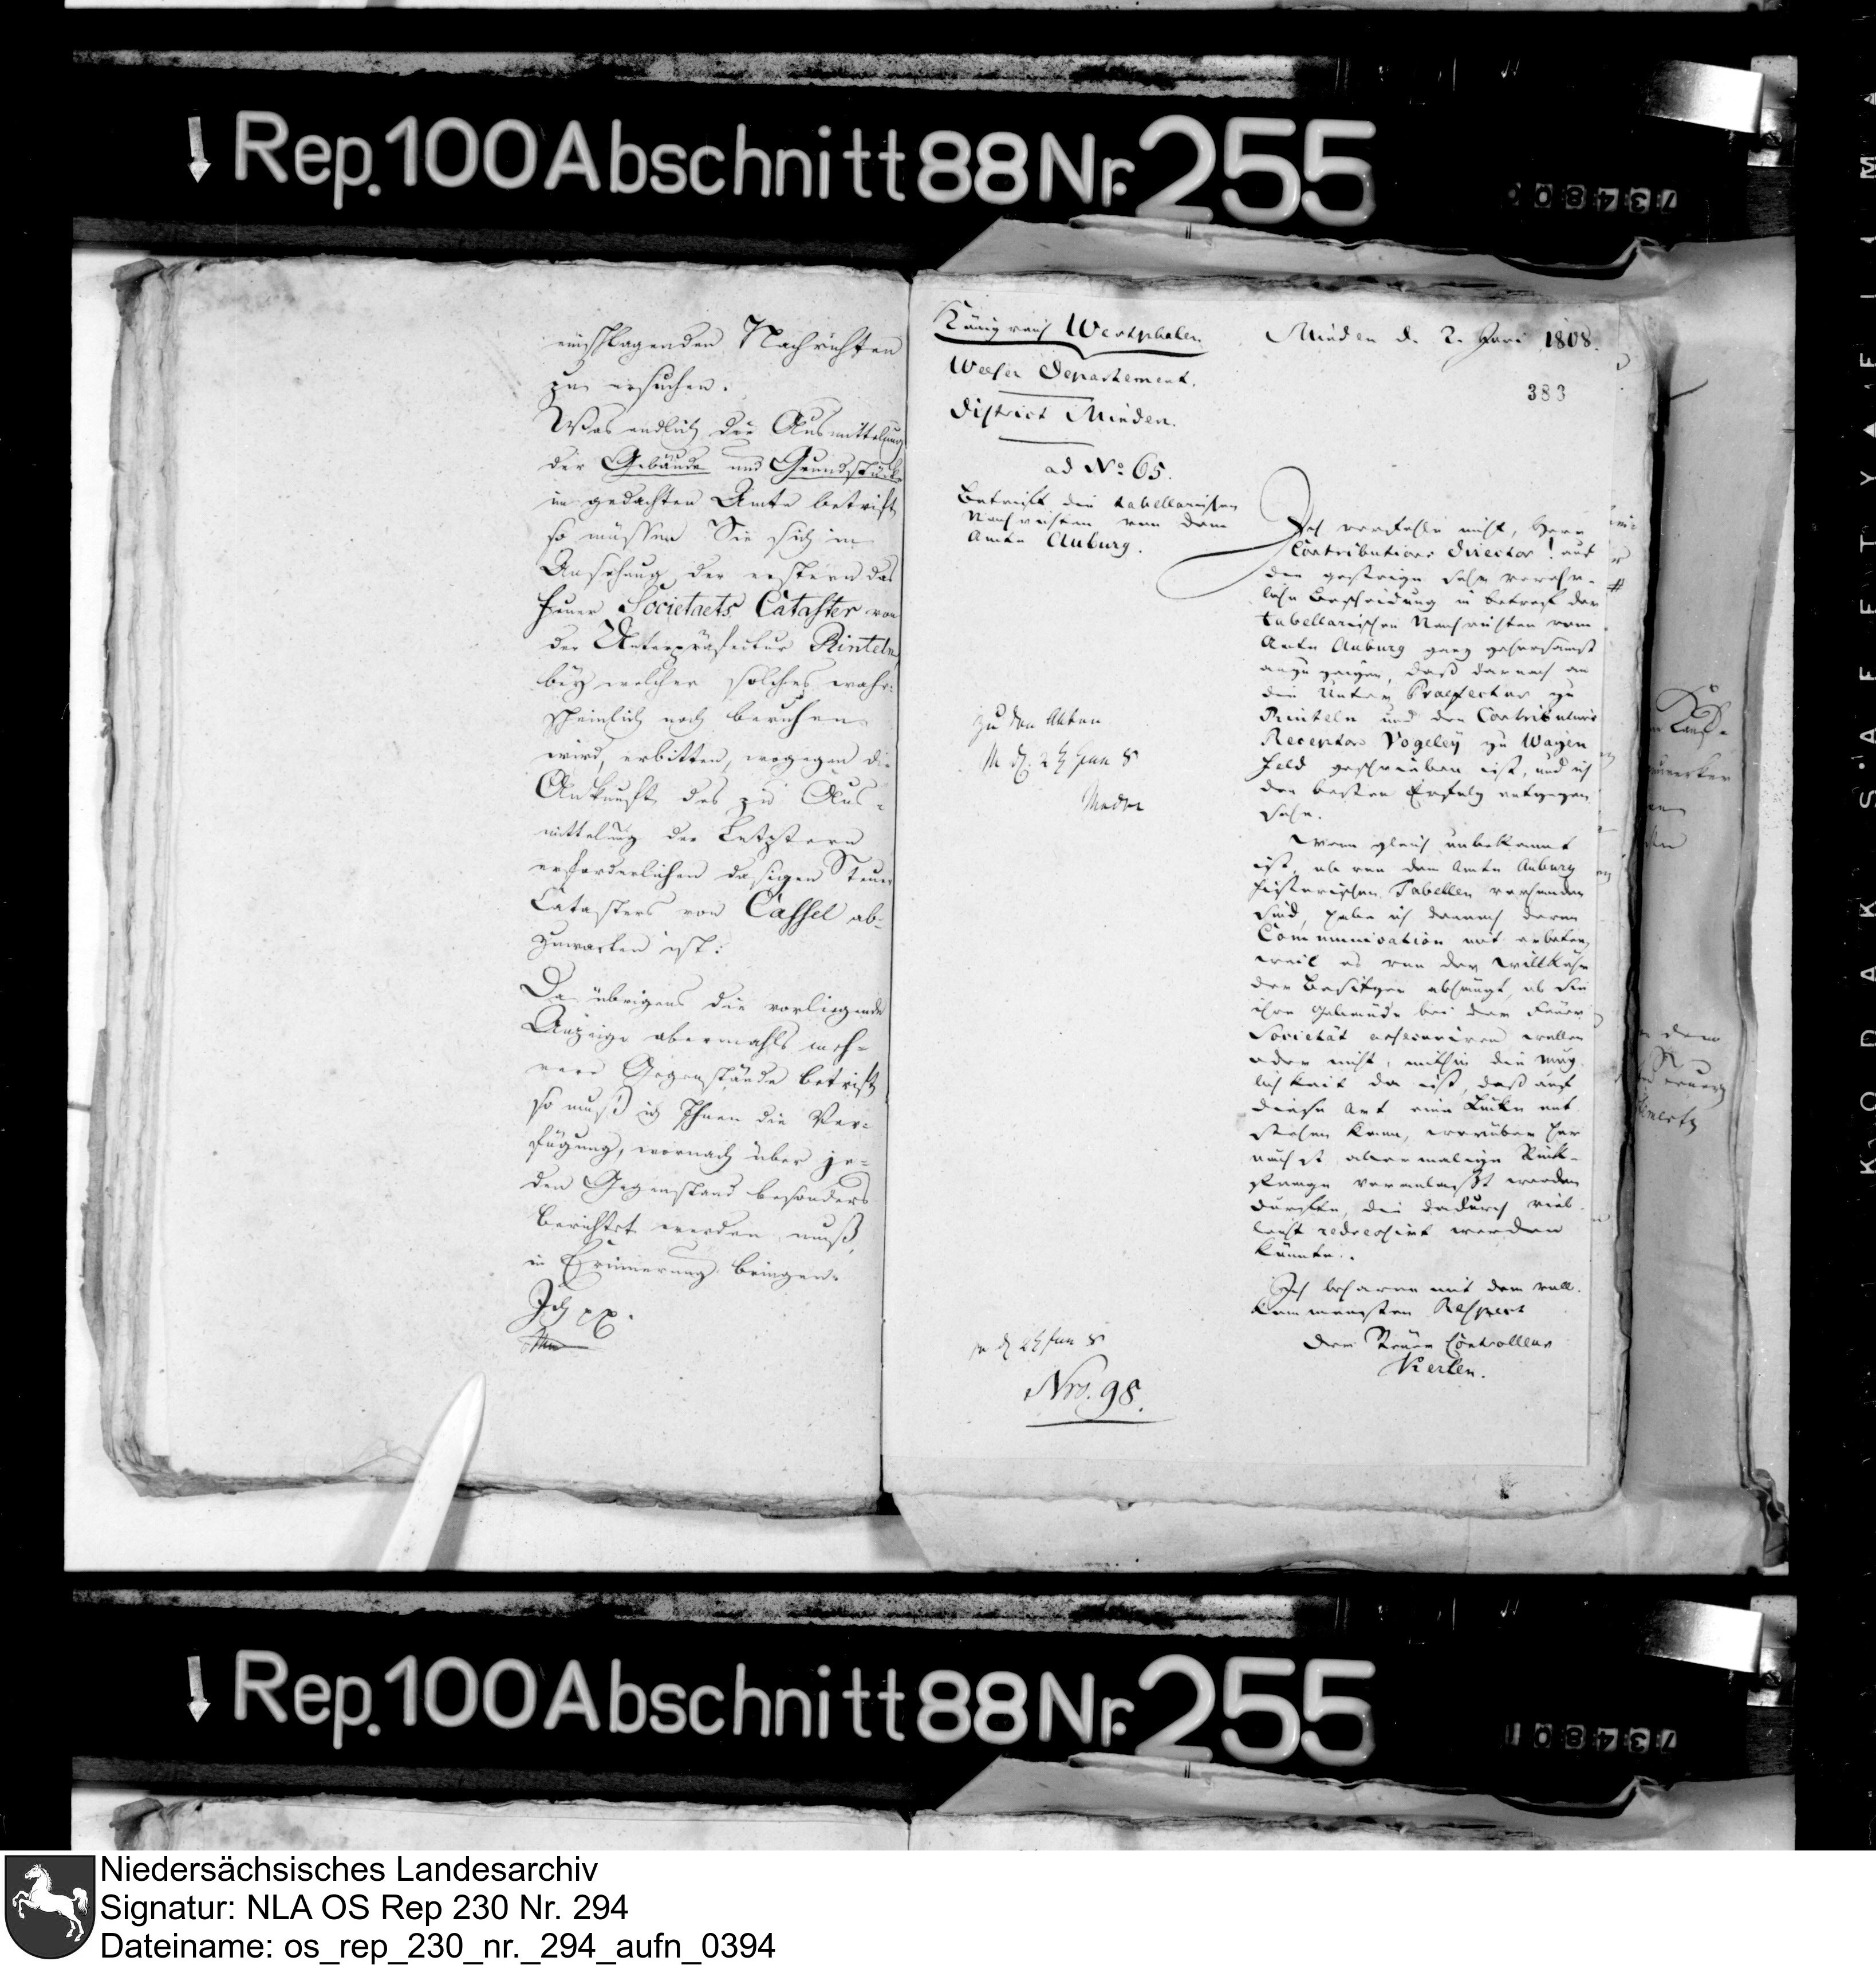 Rep. 100 Abschnitt 88 Nr. 255
734800
einschlagenden Nachrichten
zu ersuchen.
Was endlich die Ausmittelung
der Gebäude und Grundstücke
im gedachten Amte betrift
so müssen Sie sich in
Ansehung der erstern das
Feuer Societaets Cataster von
der Unterpräfectur Rinteln,
bey welcher solches wahr-
scheinlich noch beruhen
wird, erbitten, wogegen die
Ankunft des zu Aus-
mittelung der Letztern
erforderlichen dasigen Steuer
Catasters von Cassel ab-
zuwarten ist.
Da übrigens die vorliegende
Anzeige abermahls meh-
rere Gegenstände betrift
so muß ich Ihnen die Ver-
fügung, wornach über je-
den Gegenstand besonders
berichtet werden muß,
in Erinnerung bringen.
Ich
Königreich Westphalen
Weser Departement.
District Minden.
ad No 65.
Betrift die tabellarischen
Nachrichten von dem
Amte Auburg.
zu den Akten
M d. 24 Jun 8
Nro. 98.
Minden d. 2. Juni 1808.
383
Ich verfehle nicht, Herr
Contributions Director! auf
die gestrige sehr verehr-
liche Bescheidung in betref der
tabellarischen Nachrichten vom
Amte Auburg ganz gehorsamst
anzuzeigen, daß darnach an
die Unter Praefectur zu
Rinteln und den Contributions
Receptor Vogeley zu Wagen
feld geschrieben ist, und ich
den besten Erfolg entgegen
sehe.
Wenn gleich unbekannt
ist, ob von dem Amte Auburg
historischen Tabellen vorhanden
sind, habe ich dennoch deren
Communication mit erbeten,
weil es von der Willkühr
der Besitzer abhängt, ob sie
ihre Gebäude bei der Feuer
Societät assecuriren wollen
oder nicht, mithin die mög-
lichkeit da ist, daß auf
diese Art eine Lücke ent
stehen kann, worüber her
nächst abermalige Rück-
frage veranlaßt werden
dürfte, die dadurch viel-
leicht redressirt werden
könnte.
Ich beharre mit dem voll-
kommensten Respect
Der Steuer Controlleur
Kerlen.
Rep. 100 Abschnitt 88 Nr. 255
734801
Niedersächsisches Landesarchiv
Signatur: NLA OS Rep 230 Nr. 294
Dateiname: os_rep_230_nr._294_aufn_0394